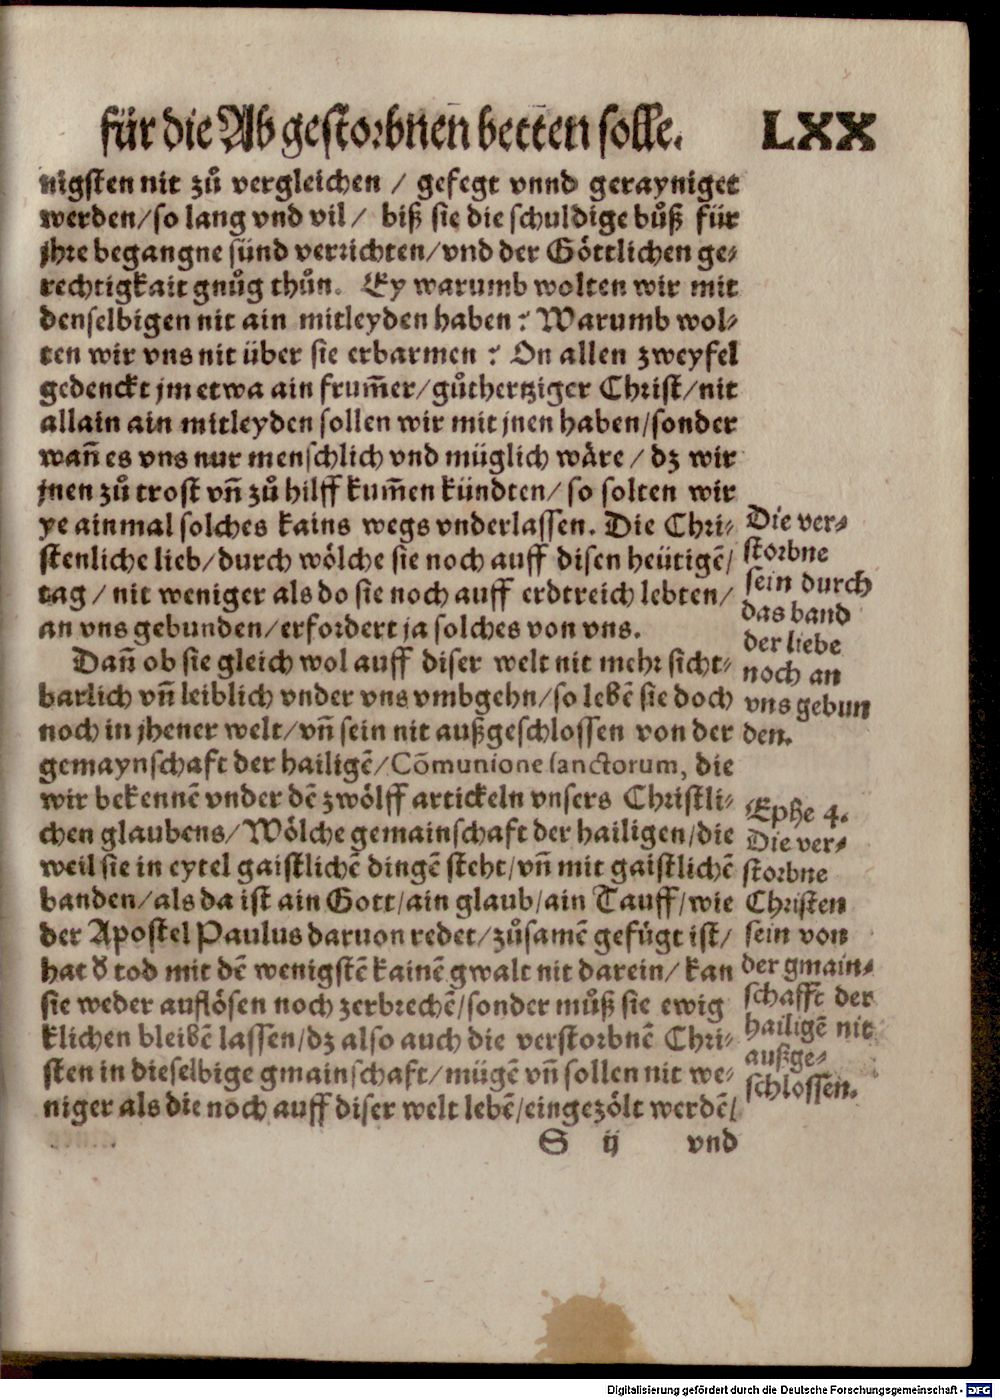 für die Abgestorbnen betten solle. LXX
nigsten nit zů vergleichen / gefegt vnnd gerayniget
werden/so lang vnd vil / biß sie die schuldige bůß für
jhre begangne sünd verrichten/vnd der Göttlichen ge⸗
rechtigkait gnůg thůn. Ey warumb wolten wir mit
denselbigen nit ain mitleyden haben? Warumb wol⸗
ten wir vns nit über sie erbarmen? On allen zweyfel
gedenckt jm etwa ain frum̃er/gůthertziger Christ/nit
allain ain mitleyden sollen wir mit jnen haben/sonder
wañ es vns nur menschlich vnd müglich wäre / dz wir
jnen zů trost vñ zů hilff kum̃en kündten/so solten wir
ye ainmal solches kains wegs vnderlassen. Die Chri⸗
stenliche lieb/durch wölche sie noch auff disen heütigẽ/
tag / nit weniger als do sie noch auff erdtreich lebten/
an vns gebunden/erfordert ja solches von vns.
Die ver⸗
storbne
sein durch
das band
der liebe
noch an
vns gebun
den.
Dañ ob sie gleich wol auff diser welt nit mehr sicht⸗
barlich vñ leiblich vnder vns vmbgehn/so lebẽ sie doch
noch in jhener welt/vñ sein nit außgeschlossen von der
gemaynschaft der hailigẽ/Cõmunione sanctorum, die
wir bekennẽ vnder dẽ zwölff artickeln vnsers Christli⸗
chen glaubens/Wölche gemainschaft der hailigen/die
weil sie in eytel gaistlichẽ dingẽ steht/vñ mit gaistlichẽ
banden/als da ist ain Gott/ain glaub/ain Tauff/wie
der Apostel Paulus daruon redet/zůsamẽ gefügt ist/
hat d̕ tod mit dẽ wenigstẽ kainẽ gwalt nit darein/kan
sie weder auflösen noch zerbrechẽ/sonder můß sie ewig
klichen bleibẽ lassen/dz also auch die verstorbnẽ Chri⸗
sten in dieselbige gmainschaft/mügẽ vñ sollen nit we⸗
niger als die noch auff diser welt lebẽ/eingezölt werdẽ/
Ephe 4.
Die ver⸗
storbne
Christen
sein von
der gmain⸗
schafft der
hailigẽ nit
außge⸗
schlossen.
S ij vnd
Digitalisierung gefördert durch die Deutsche Forschungsgemeinschaft - DFG